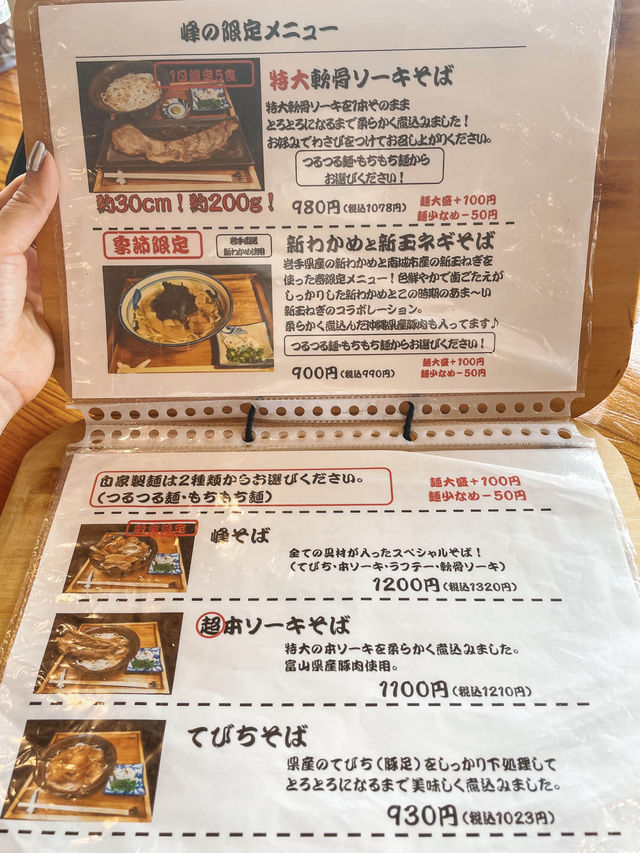 峰の限定メニュー
1日限定5食
特大軟骨ソーキそば
特大軟骨ソーキを1本そのまま
とろとろになるまで柔らかく煮込みました！
お好みでわさびをつけてお召し上がりください。
つるつる麺・もちもち麺から
お選びください！
約30cm！約200g！
980円(税込1078円)
麺大盛＋100円
麺少なめ－50円
季節限定
岩手直送
新わかめ使用
新わかめと新玉ネギそば
岩手県産の新わかめと南城市産の新玉ねぎを
使った春限定メニュー！色鮮やかで歯ごたえが
しっかりした新わかめとこの時期のあま～い
新玉ねぎのコラボレーション。
柔らかく煮込んだ沖縄県産豚肉も入ってます♪
つるつる麺・もちもち麺からお選びください！
900円(税込990円)
麺大盛＋100円
麺少なめ－50円
自家製麺は2種類からお選びください。
(つるつる麺・もちもち麺)
麺大盛＋100円
麺少なめ－50円
数量限定
峰そば
全ての具材が入ったスペシャルそば！
(てびち・本ソーキ・ラフテー・軟骨ソーキ)
1200円(税込1320円)
超本ソーキそば
特大の本ソーキを柔らかく煮込みました。
富山県産豚肉使用。
1100円(税込1210円)
てびちそば
県産のてびち(豚足)をしっかり下処理して
とろとろになるまで美味しく煮込みました。
930円(税込1023円)